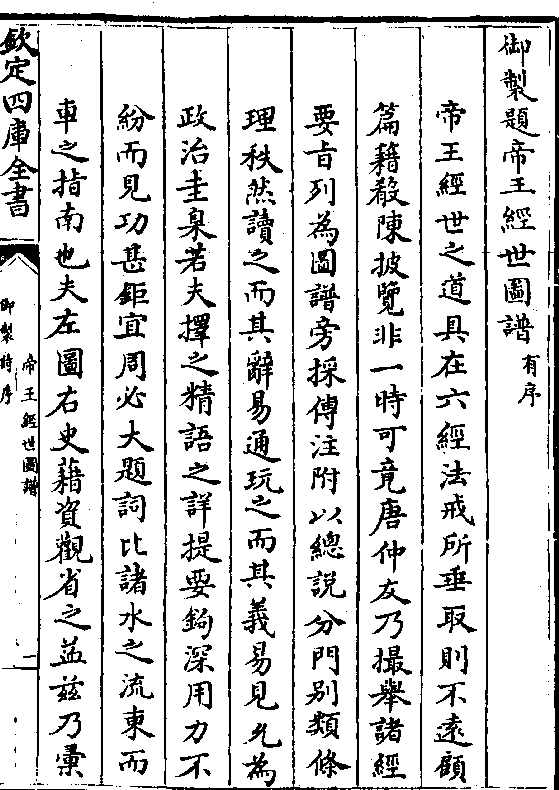 御製題帝王經世圖譜有序
帝王經世之道具在六經法戒所垂取則不遠顧
篇籍殽陳披覽非一時可竟唐仲友乃撮舉諸經
要㫖列為圖譜旁採傳注附以總說分門别類條
理秩然讀之而其辭易通玩之而其義易見允為
政治圭臬若夫擇之精語之詳提要鉤深用力不
紛而見功甚鉅宜周必大題詞比諸水之流東而
車之指南也夫左圖右史藉資觀省之益兹乃彚
欽定四庫全書
帝王經世圖譜
御製詩序
一